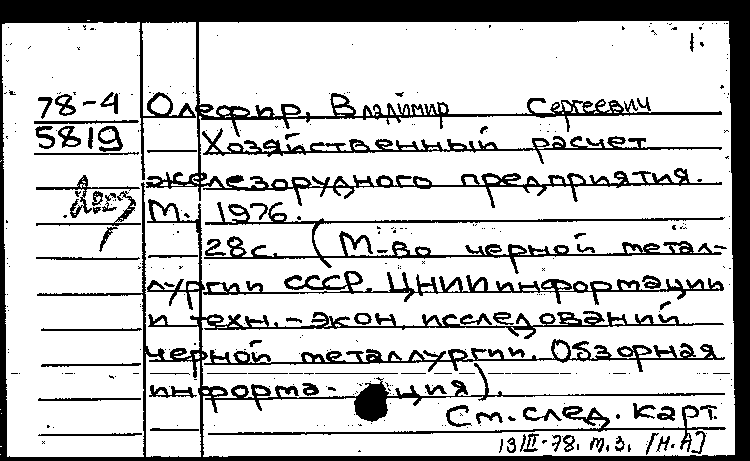 1.
78-4 Олефир, Владимир Сергеевич
5819 Хозяйственный расчет
железорудного предприятия.
М., 1976.
28с. (М-во черной метал-
лургии СССР. ЦНИИинформации
и техн.-экон. исследований
черной металлургии. Обзорная
информа- ция).
См. след. карт.
13III-78. т.з. [Н.А]